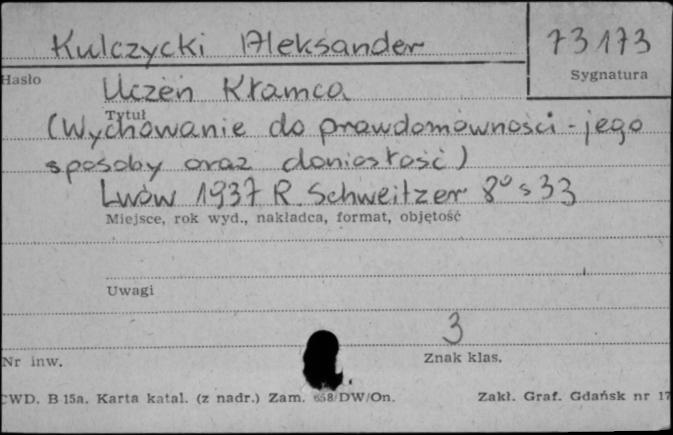 Kulczycki Aleksander
73173
Hasło
Sygnatura
Uczeń Kłamca
Tytuł
(Wychowanie do prawdomówności - jego
sposoby oraz doniosłość)
Lwów 1937 R. Schweitzer 8° s 33
Miejsce, rok wyd., nakładca, format, objętość
Uwagi
3
Nr inw.
Znak klas.
CWD. B 15a. Karta katal. (z nadr.) Zam. 658/DW/On.
Zakł. Graf. Gdańsk nr 17